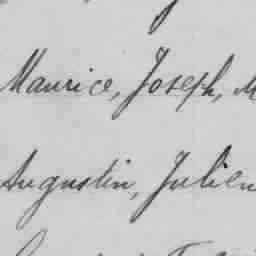 Maurice, Joseph, M
Augustin, Julien